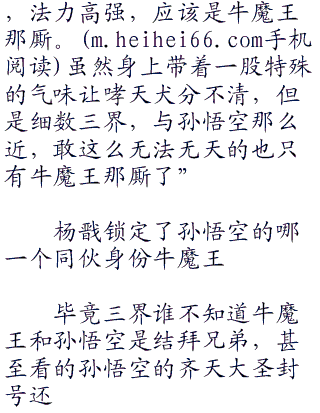 ，法力高强，应该是牛魔王
那厮。(m.heihei66.com手机
阅读)虽然身上带着一股特殊
的气味让哮天犬分不清，但
是细数三界，与孙悟空那么
近，敢这么无法无天的也只
有牛魔王那厮了”
杨戬锁定了孙悟空的哪
一个同伙身份牛魔王
毕竟三界谁不知道牛魔
王和孙悟空是结拜兄弟，甚
至看的孙悟空的齐天大圣封
号还